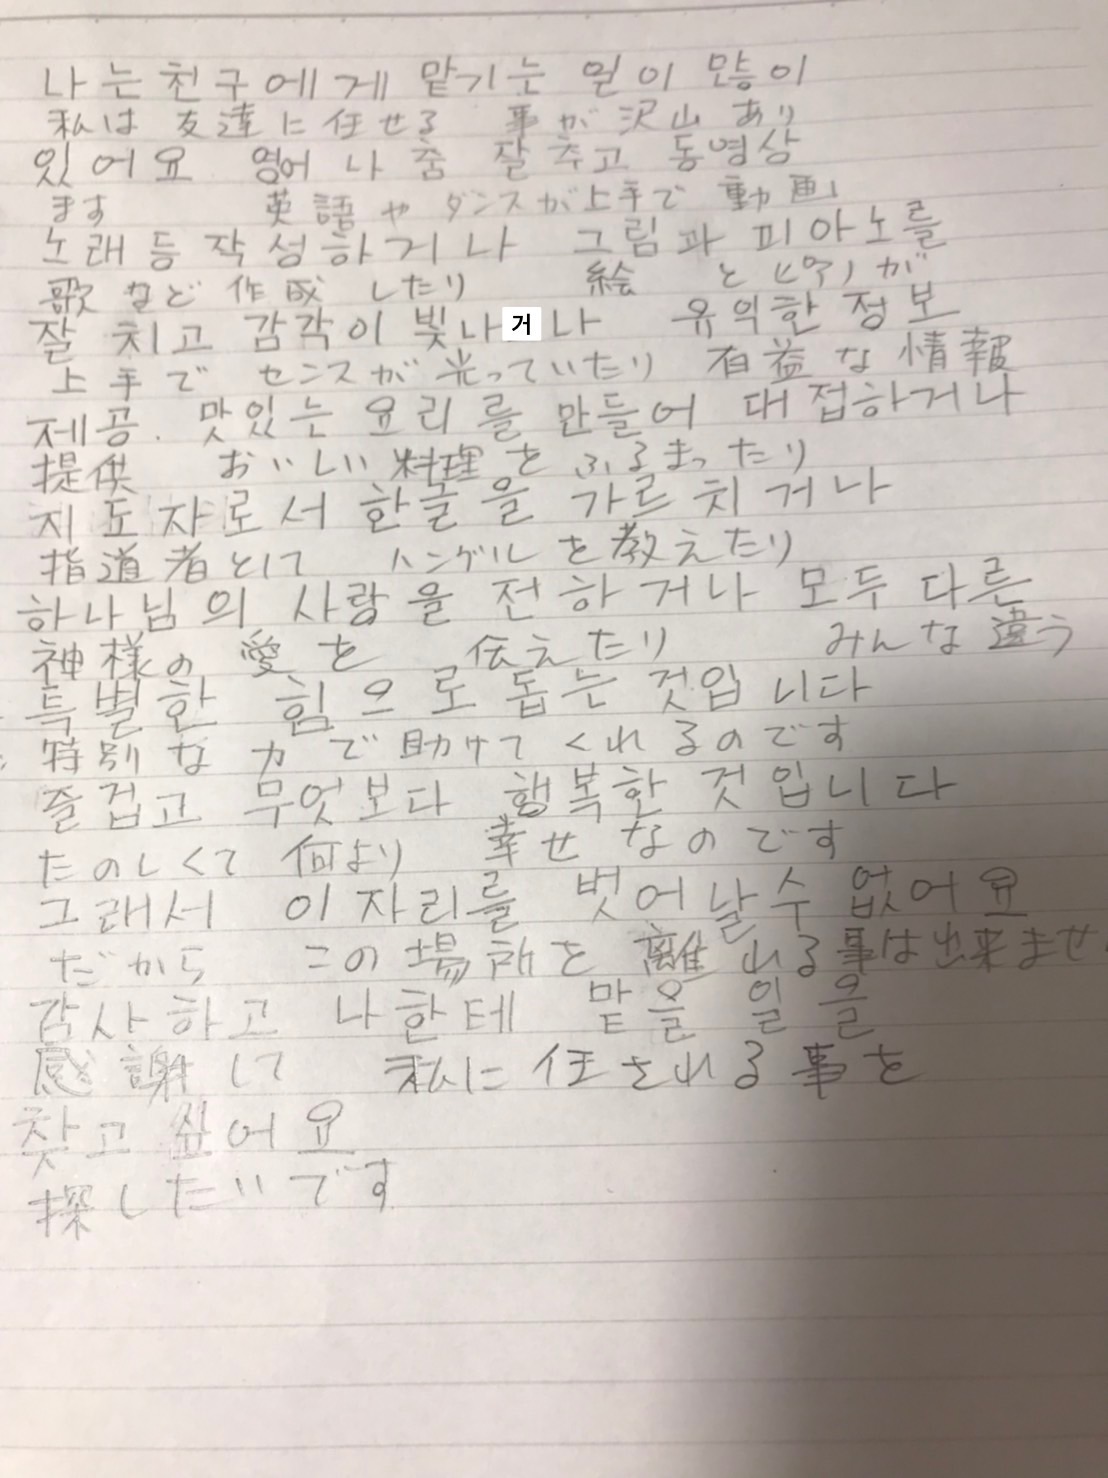 나는 친구에게 맡기는 일이 많이
私は 友達に 任せる 事が沢山 あり
있어요 영어나 춤 잘 추고 동영상
ます 英語や ダンスが上手で 動画
노래 등 작성하거나 그림과 피아노를
歌など 作成 したり 絵 と ピアノが
잘 치고 감각이 빛나거나 유익한 정보
上手で センスが 光っていたり 有益な情報
제공. 맛있는 요리를 만들어 대접하거나
提供 おいしい 料理を ふるまったり
지도쟈로서 한글을 가르치거나
指導者として ハングルを教えたり
하나님의 사랑을 전하거나 모두 다른
神様の 愛を 伝えたり みんな違う
특별한 힘으로 돕는 것입니다
特別な 力で助けてくれるのです
즐겁고 무엇보다 행복한 것입니다
たのしくて 何より 幸せなのです
그래서 이 자리를 벗어날 수 없어요
だから この場所を 離れる事は出来ませ
감사하고 나한테 맡을 일을
感謝して 私に任される事を
찾고 싶어요
探したいです